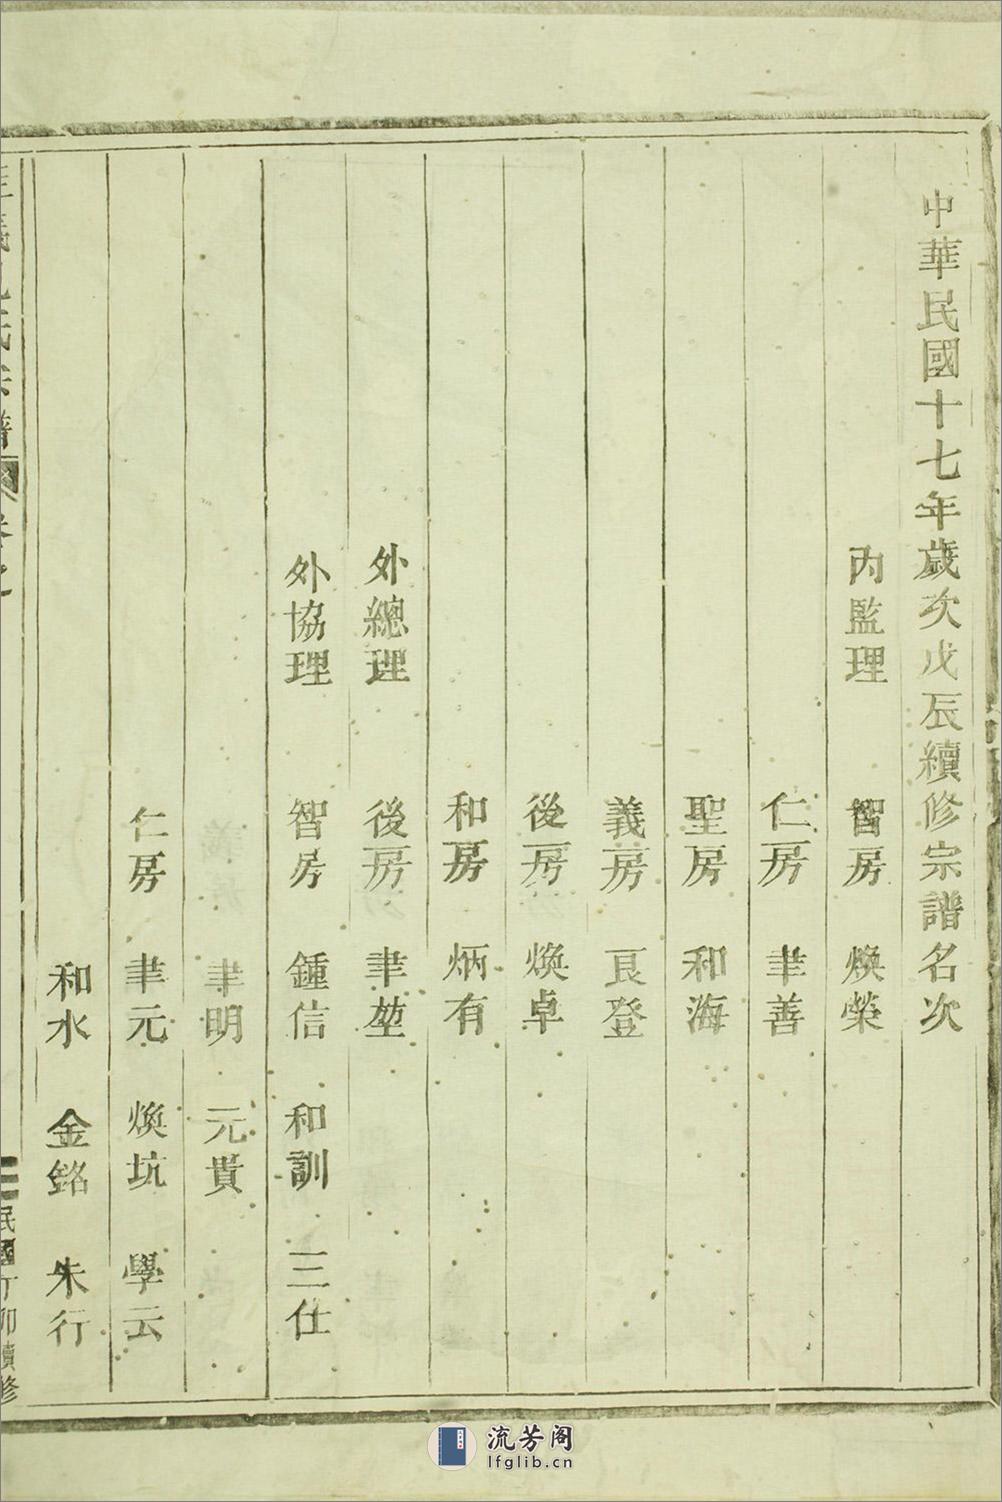 中華民國十七年歲次戊辰續修宗譜名次
內監理 智房 煥榮
仁房 聿善
聖房 和海
義房 良登
後房 煥卓
和房 炳有
外總理 後房 聿堃
外協理 智房 鍾信 和訓 三仕
聿明 元貴
仁房 聿元 煥坑 學云
和水 金銘 朱行
氏宗譜 卷之 民國丁卯續修
流芳阁
lfglib.cn